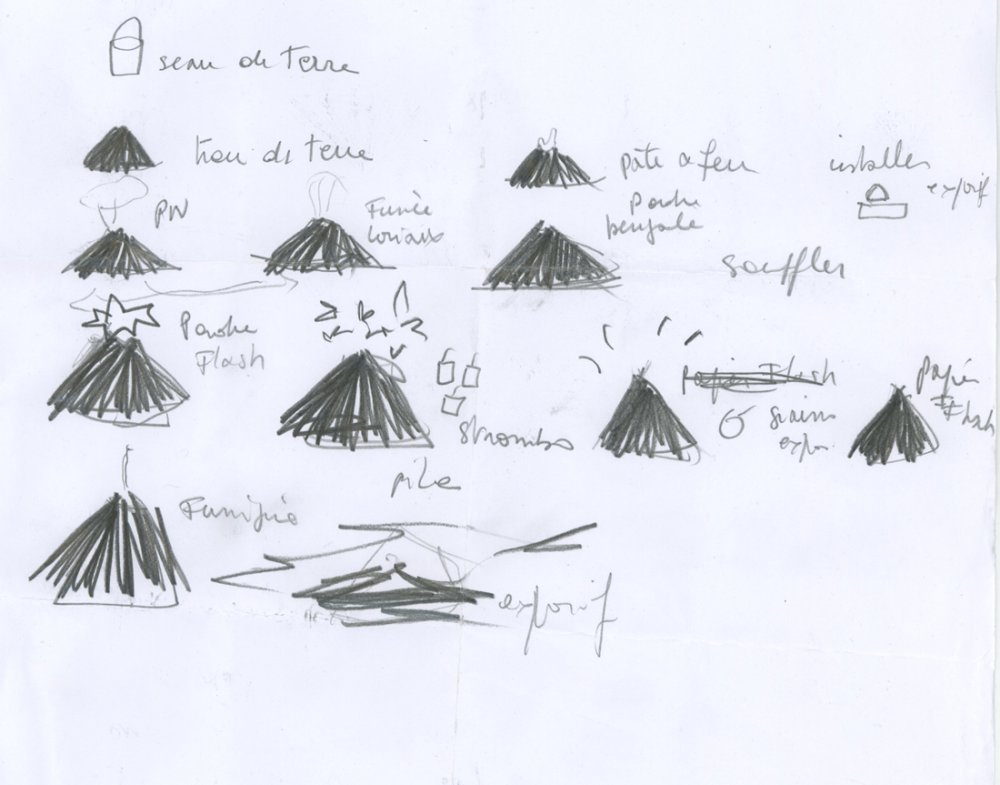 seau de terre
trou de terre
pâte à feu
installer
explosif
PN
Fumée
Poudre
bengale
souffler
Poudre
Flash
Papier Flash
Strombo
grains
explo
papier
Flash
pile
Fumigène
explosif